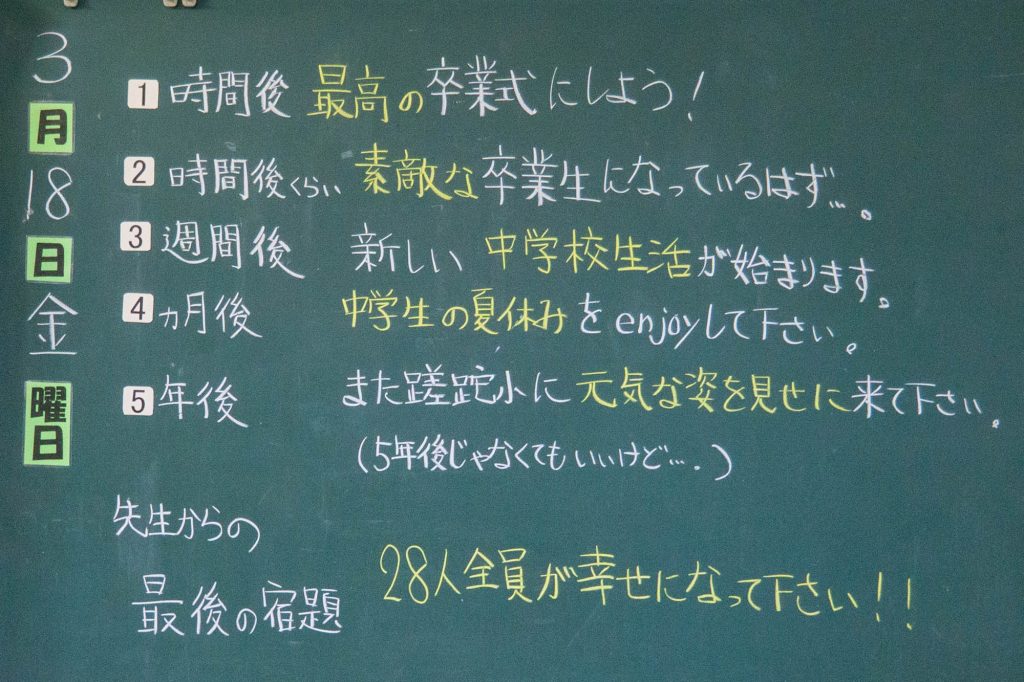 3月18日金曜日
1 時間後 最高の卒業式にしよう!
2 時間後くらい 素敵な卒業生になっているはず…。
3 週間後 新しい 中学校生活が始まります。
4 ヵ月後 中学生の夏休みをenjoyして下さい。
5 年後 また蹉跎小に元気な姿を見せに来て下さい。
(5年後じゃなくてもいいけど….)
先生からの
最後の宿題
28人全員が幸せになって下さい!!